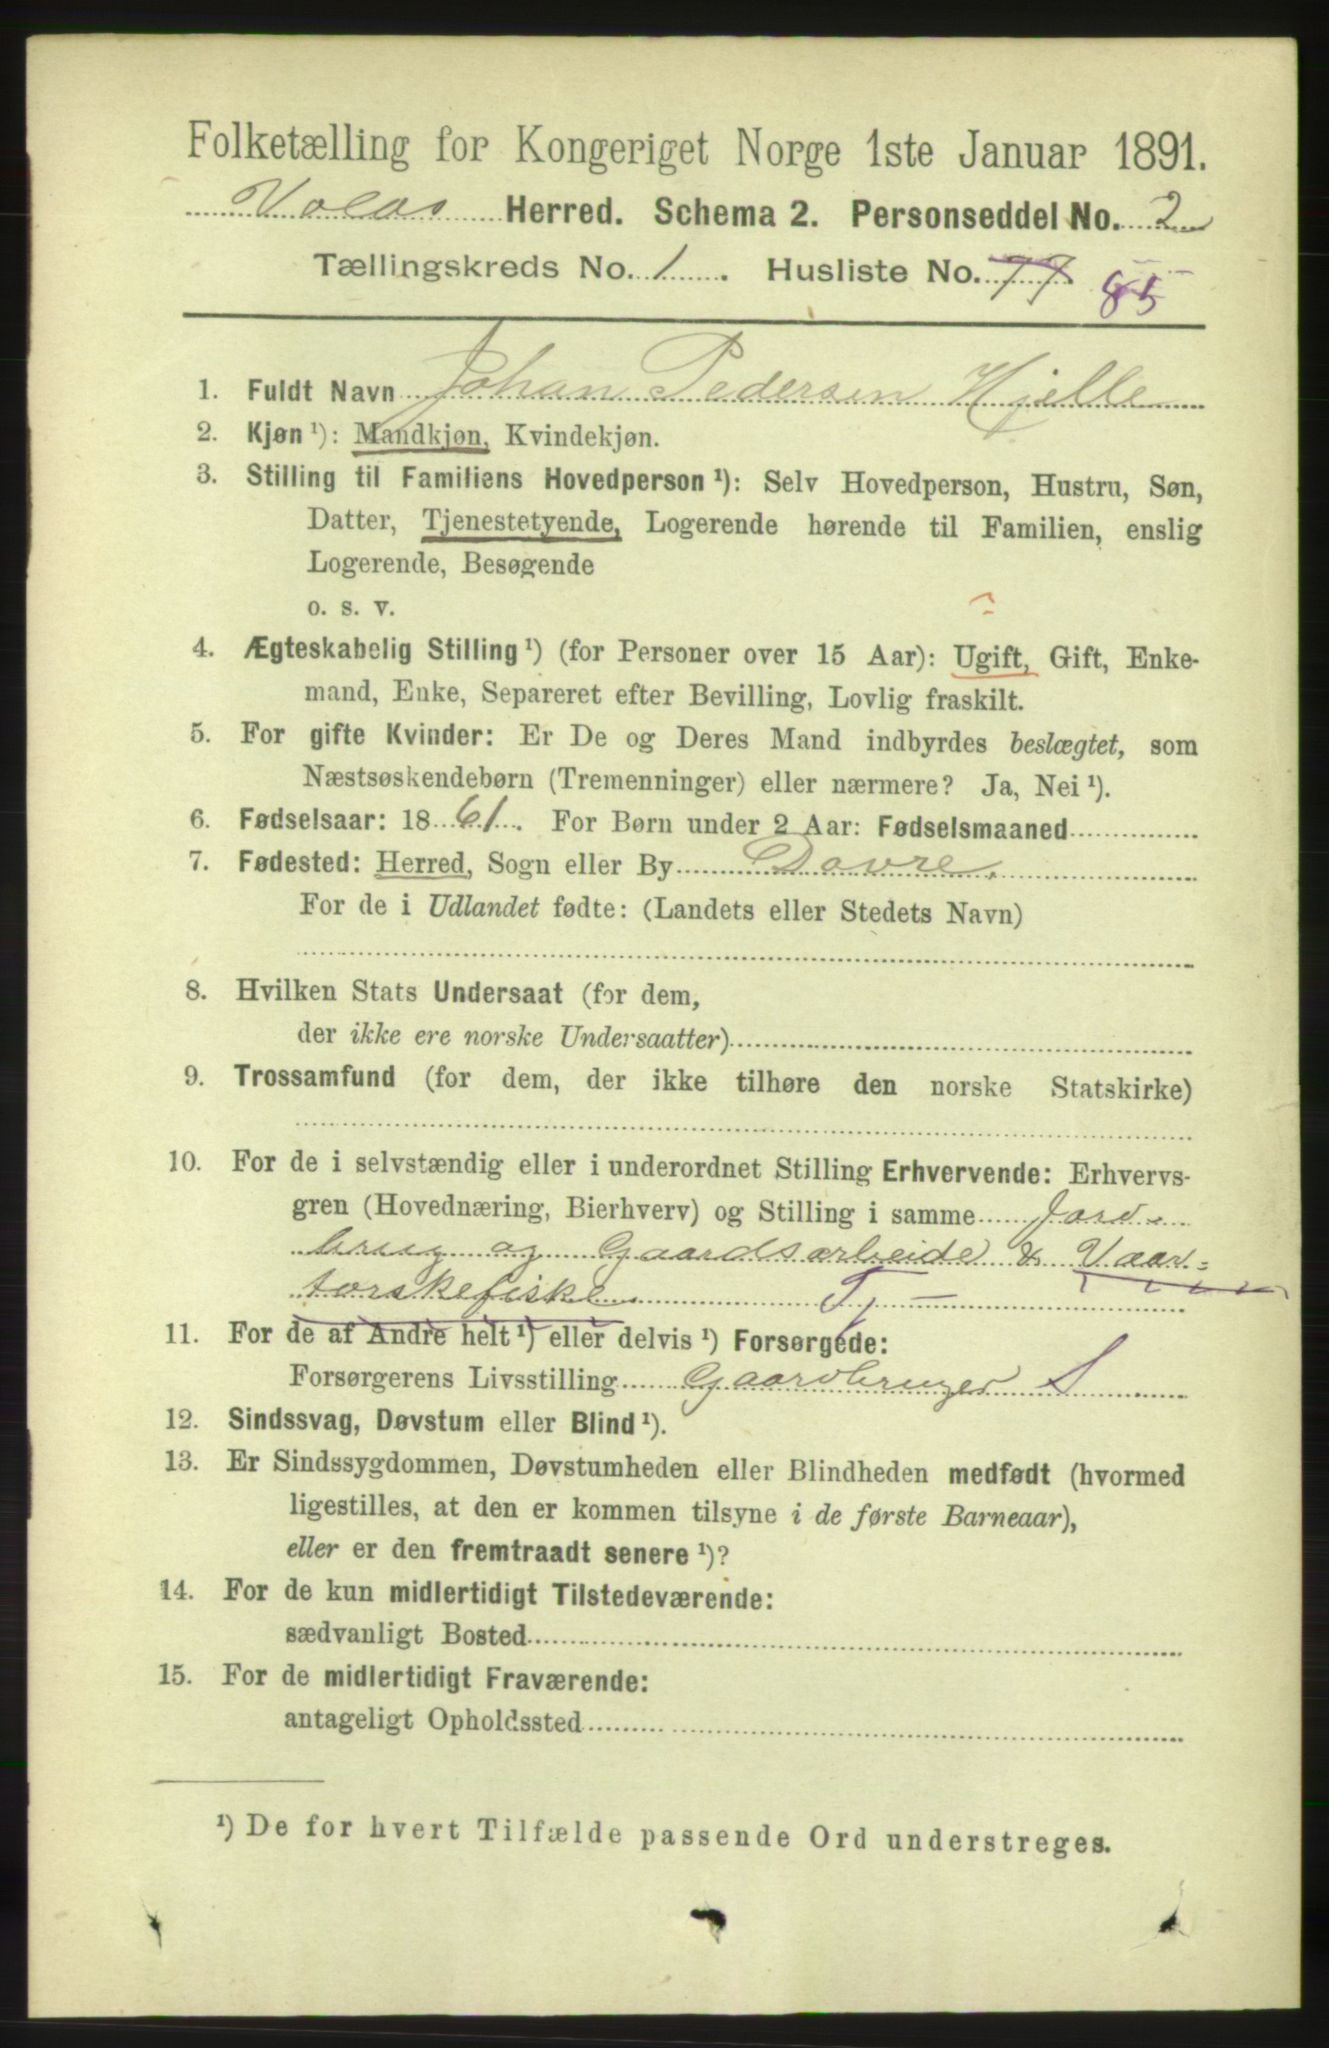 Folketælling for Kongeriget Norge 1ste Januar 1891.
Herred. Schema 2. Personseddel No. 2
Tællingskreds No. 1. Husliste No. 77 85
1. Fuldt Navn Johan Pedersen Hjelle
2. Kjøn ¹): Mandkjøn, Kvindekjøn.
3. Stilling til Familiens Hovedperson ¹): Selv Hovedperson, Hustru, Søn,
Datter, Tjenestetyende, Logerende hørende til Familien, enslig
Logerende, Besøgende
o. s. v.
4. Ægteskabelig Stilling ¹) (for Personer over 15 Aar): Ugift, Gift, Enke-
mand, Enke, Separeret efter Bevilling, Lovlig fraskilt.
5. For gifte Kvinder: Er De og Deres Mand indbyrdes beslægtet, som
Næstsøskendebørn (Tremenninger) eller nærmere? Ja, Nei ¹).
6. Fødselsaar: 1861. For Børn under 2 Aar: Fødselsmaaned
7. Fødested: Herred, Sogn eller By Dovre.
For de i Udlandet fødte: (Landets eller Stedets Navn)
8. Hvilken Stats Undersaat (for dem,
der ikke ere norske Undersaatter)
9. Trossamfund (for dem, der ikke tilhøre den norske Statskirke)
10. For de i selvstændig eller i underordnet Stilling Erhvervende: Erhvervs-
gren (Hovednæring, Bierhverv) og Stilling i samme Jord-
brug og Gaardsarbeide & Vaar-
torskefiske. Tj –
11. For de af Andre helt ¹) eller delvis ¹) Forsørgede:
Forsørgerens Livsstilling Gaardbruger S
12. Sindssvag, Døvstum eller Blind ¹).
13. Er Sindssygdommen, Døvstumheden eller Blindheden medfødt (hvormed
ligestilles, at den er kommen tilsyne i de første Barneaar),
eller er den fremtraadt senere ¹)?
14. For de kun midlertidigt Tilstedeværende:
sædvanligt Bosted
15. For de midlertidigt Fraværende:
antageligt Opholdssted
¹) De for hvert Tilfælde passende Ord understreges.